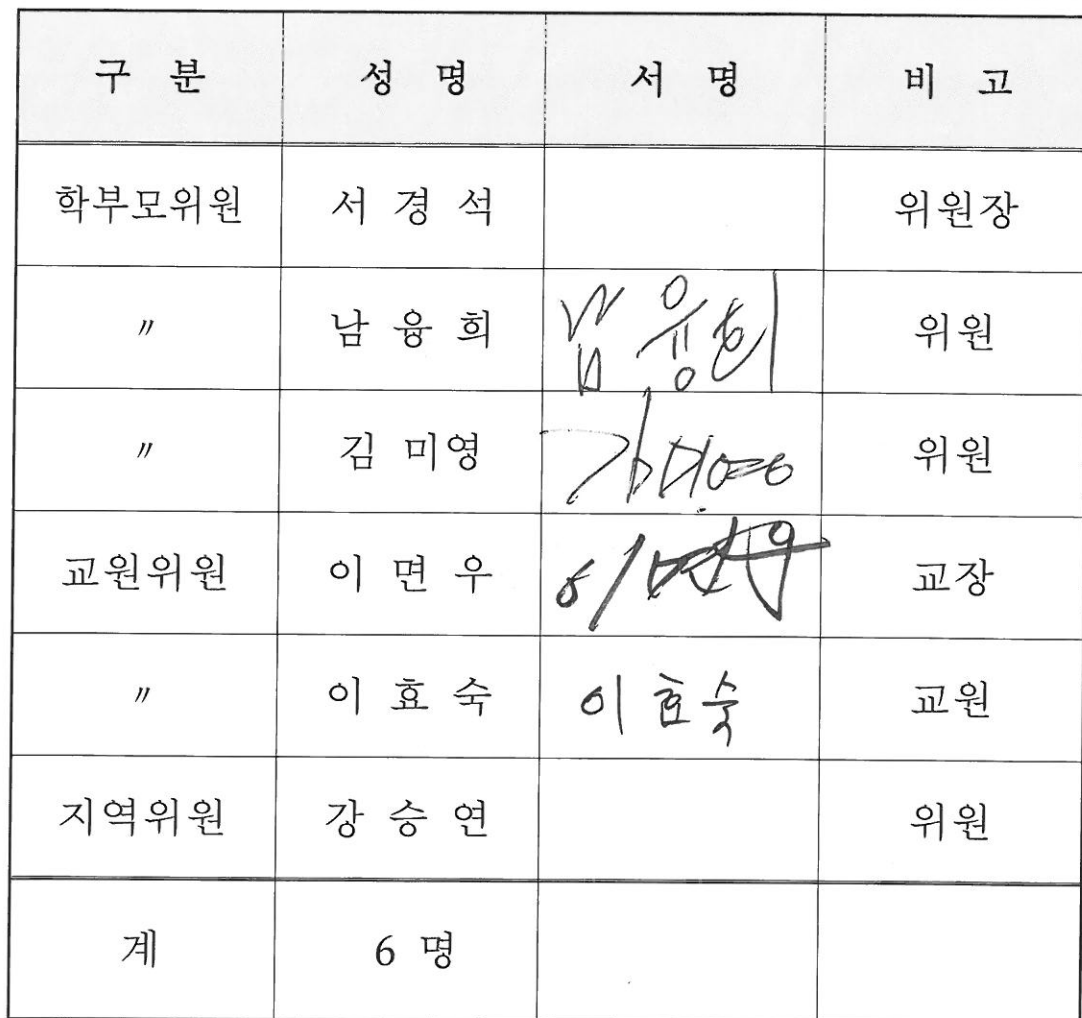 구 분 성 명 서 명 비 고
학부모위원 서 경 석 위원장
〃 남 융 희 남융희 위원
〃 김 미영 김미영 위원
교원위원 이 면 우 이면우 교장
〃 이 효 숙 이효숙 교원
지역위원 강 승 연 위원
계 6 명